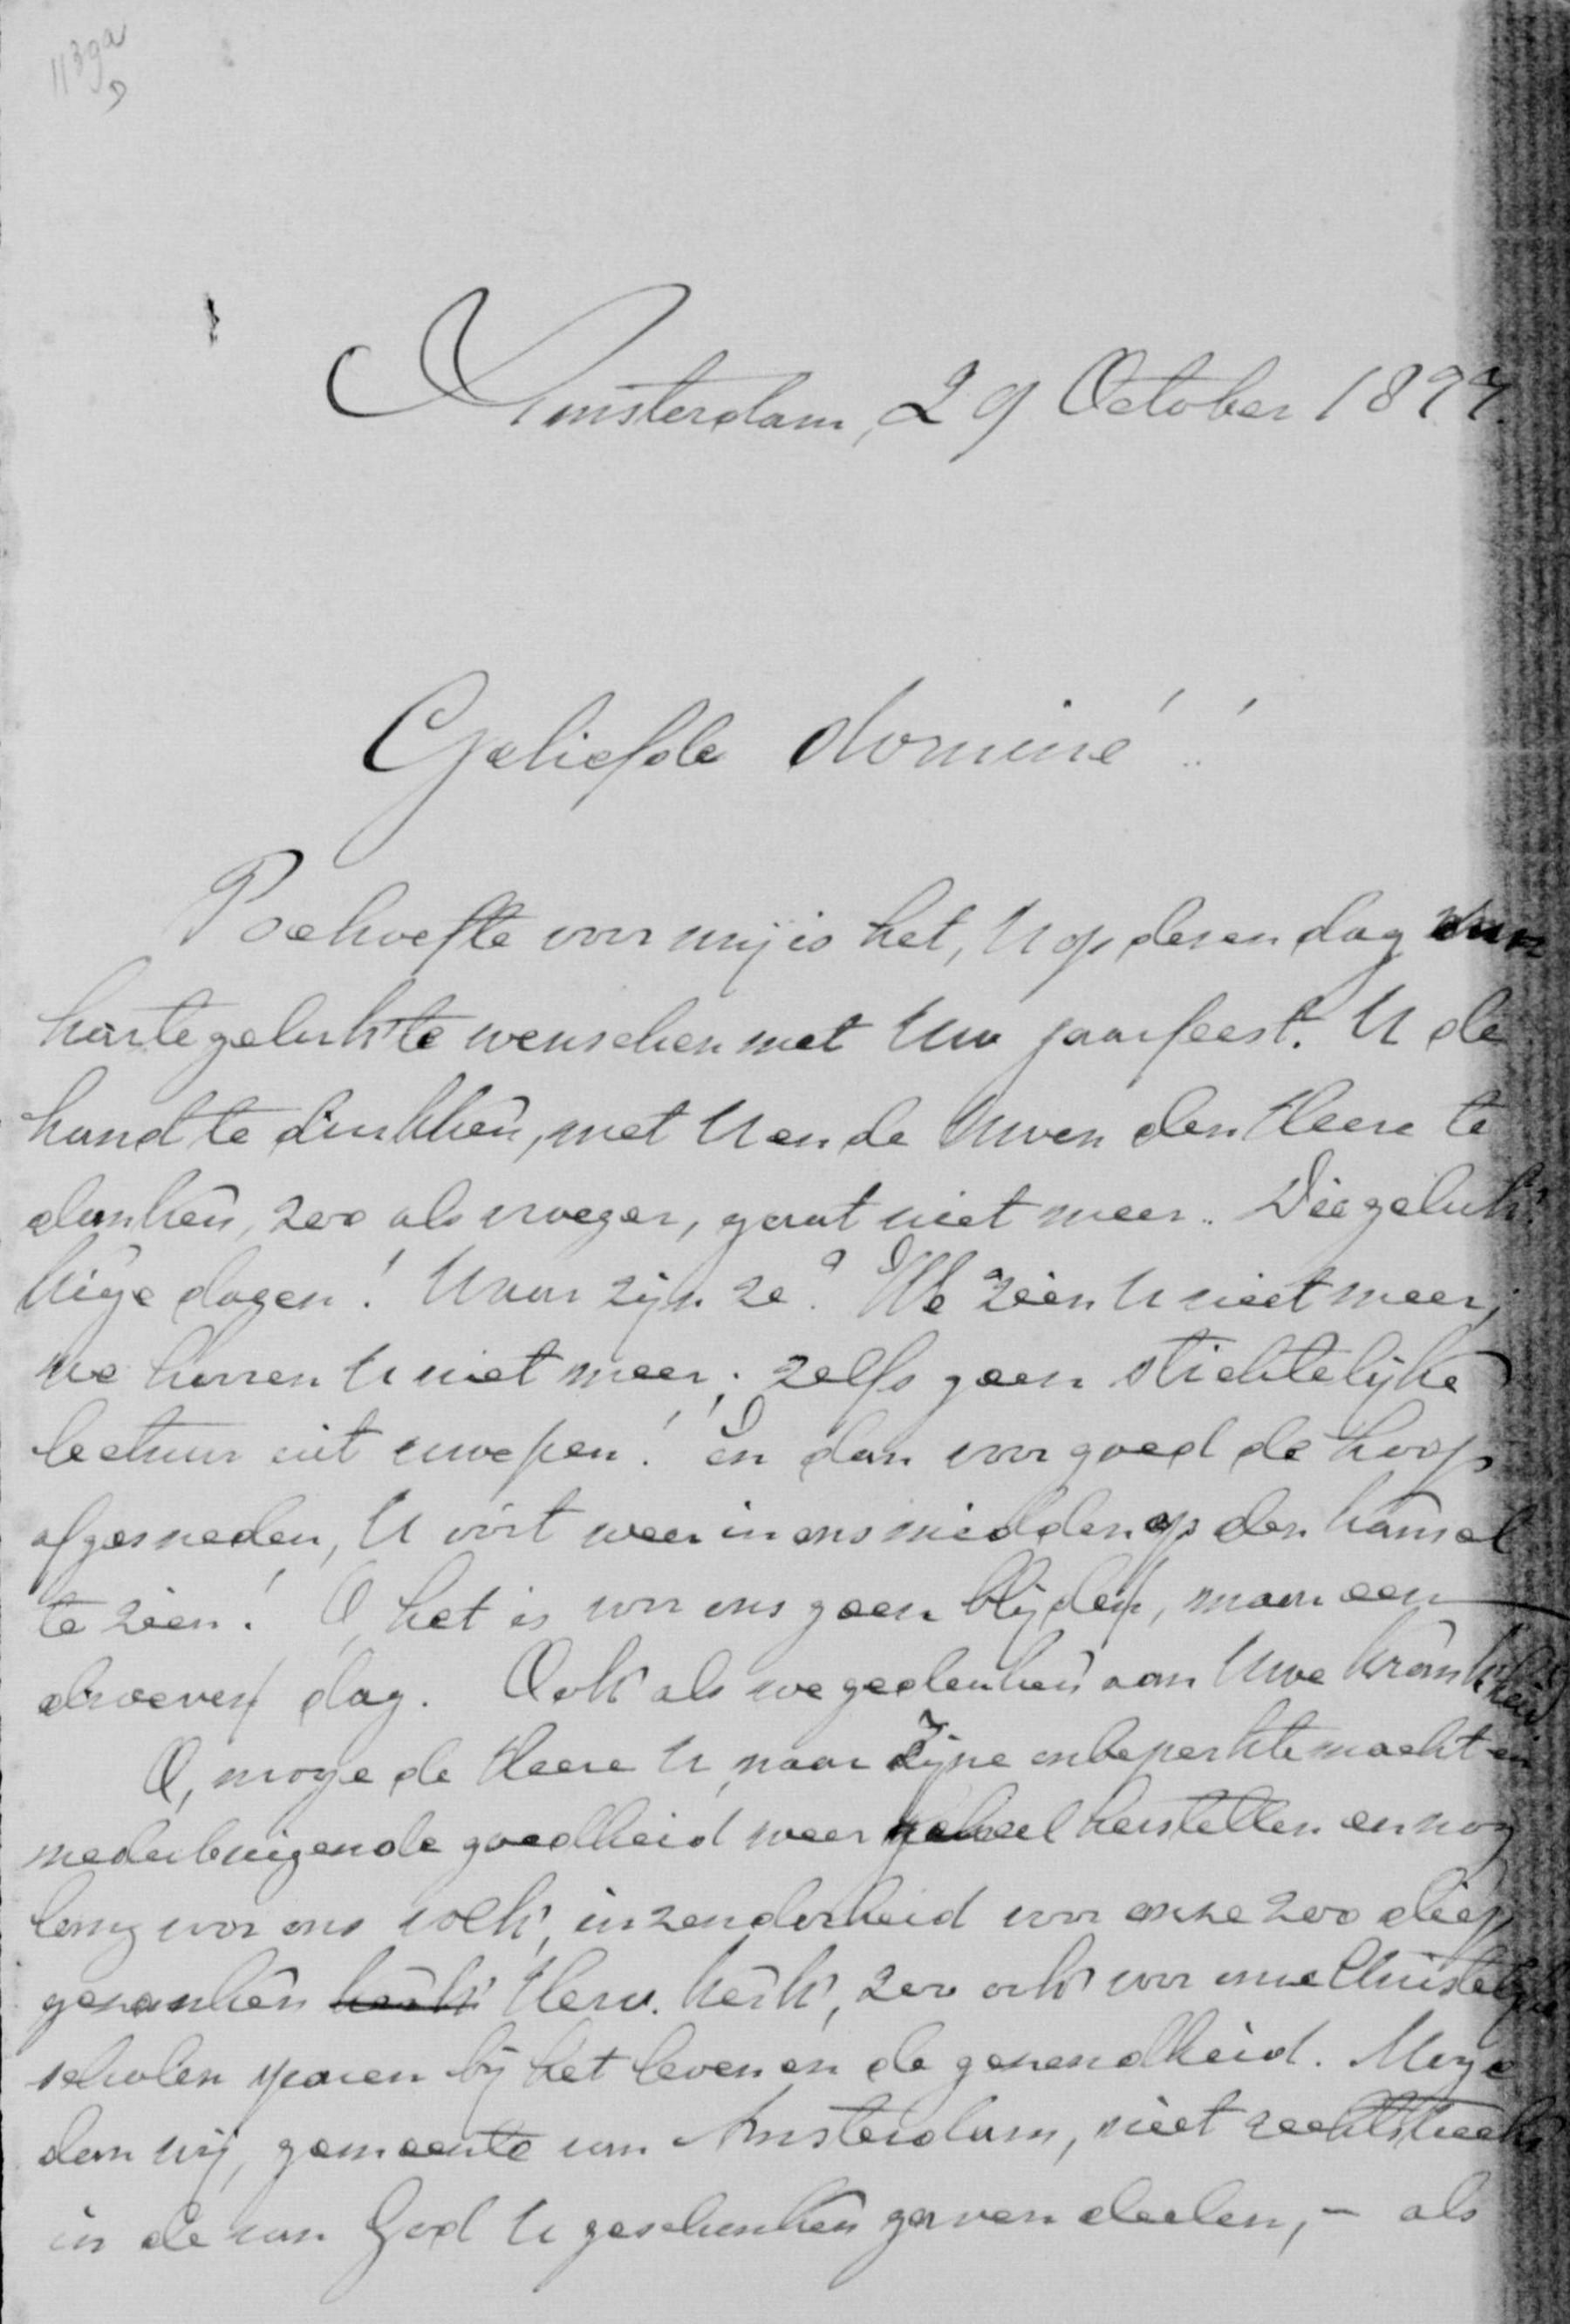 1139a
Amsterdam, 29 October 1897.
Geliefde dominé!
Behoefte voor mij is het, U op dezen dag van
harte geluk te wenschen met Uw jaarfeest. U de
hand te drukken, met U en de Uwen den Heere te
danken, zoo als vroeger, gaat niet meer. Die geluk-
kige dagen! Waar zijn ze? We zien U niet meer;
we hooren U niet meer; zelfs geen stichtelijke
lectuur uit uwe pen! En dan voor goed de hoop
afgesneden, U ooit weer in ons midden op den kansel
te zien! O, het is voor ons geen blijde, maar een
droeve dag. Ook als we gedenken aan Uwe krankheid
O, moge de Heere U, naar Zijne onbeperkte macht en
nederbuigende goedheid weer geheel herstellen en nog
lang voor ons volk, inzonderheid voor onze zoo diep
gezonken kerk Herv. kerk, zoo ook voor onze Christelijke
scholen sparen bij het leven en de gezondheid. Moge
dan wij, gemeente van Amsterdam, niet rechtstreeks
in de van God U geschonken gaven deelen, - als